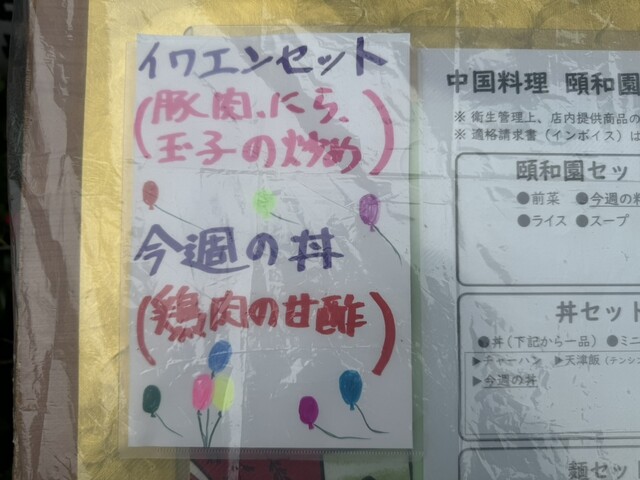 イワエンセット
(豚肉、にら、
玉子の炒め)
今週の丼
(鶏肉の甘酢)
中国料理 頤和園
※ 衛生管理上、店内提供商品の
※ 適格請求書(インボイス)は
頤和園セッ
●前菜 ●今週の料
●ライス ●スープ
丼セット
●丼(下記から一品) ●ミニ
▶チャーハン ▶天津飯(テンシン
▶今週の丼
麺セッ